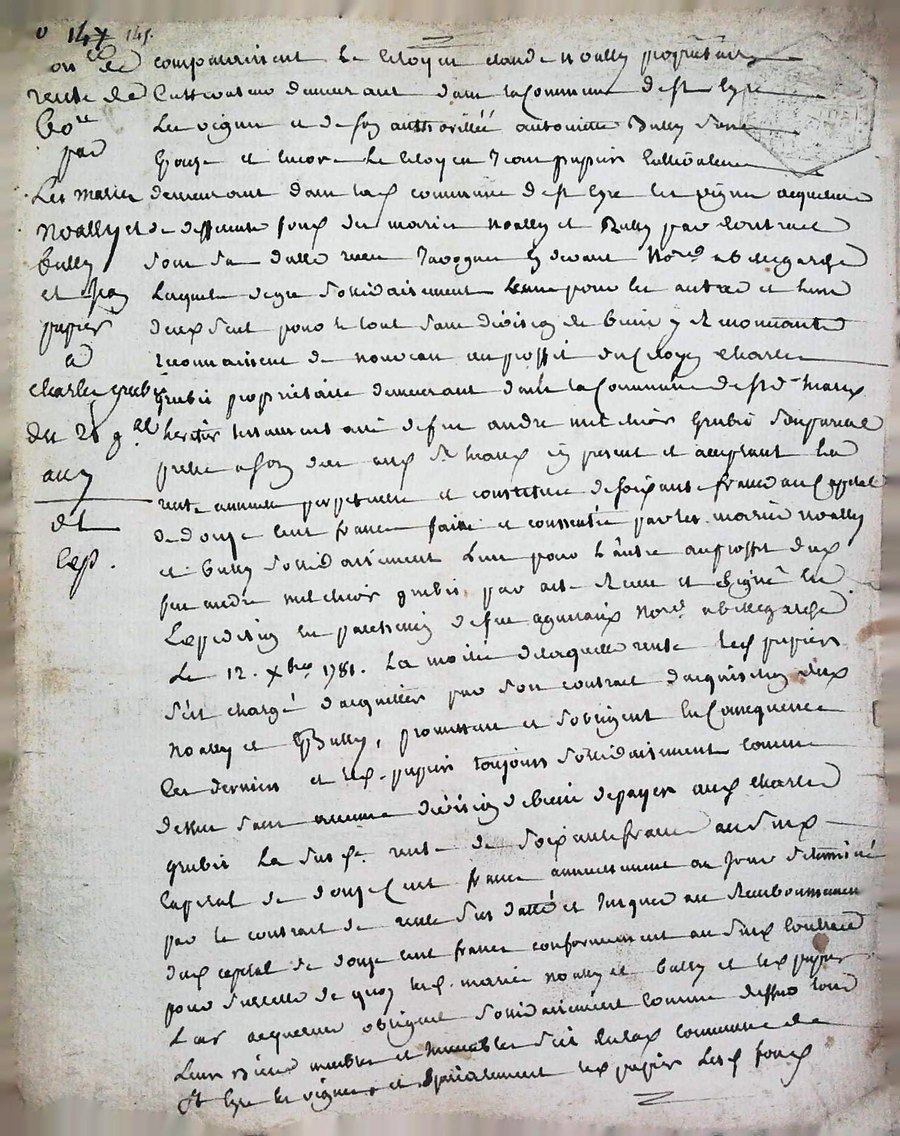 147 145.
comparaissent le Citoyen claude noally propriétaire
rente de Cultivateur demeurant dans la Commune de st Cyre
Les vignes et de soy authorisée antoinette Bully Sone
par
Epouse et encore Le Citoyen Jean papier Cultivateur
Les mariés demeurant dans lad commune de st Cyre les vignes acquereur
noally et de differents fonds des mariés noally et Bully par Contract
bully sous sa datte reçu Javogues cy devant No.re ab Régarché
et jean Lesquels de gré Sollidairement L'une pour les autres et l'une
papier deux seul pour le tout sans division de biens y Renonçants
a reconnaissent de nouveau au proffit du Citoyen Charles
charles grubis grubis propriétaire demeurant dans la Commune de st haux
du 28 g.al heritier testamentaire de feu andré melchior Grubis Son
any present et acceptant La
rente annuelle perpetuelle et constituée de soixante francs au Capital
de de douze cent francs faite et consentie par les mariés noally
Exp. et bully Sollidairement L'un pour L'autre au proffit dud
feu andré melchior grubis par acte Reçu et signé En
Expedition en parchemin de feu agniaux No.re ab Régarché
Le 12. xbre 1781. La moitié de laquelle rente led papier
S'est chargé d'acquitter par son contract d'acquisition desd
noally et Bully, promettent et s'obligent En Consequence
Ces derniers et led papier toujours Sollidairement comme
dessus sans aucune division de biens de payer aud Charles
grubis La susd.e rente de Soixante francs au susd
Capital de douze Cent francs annuellement au Jour determiné
par le contract de rente sus datté et Jusques au Remboursement
dud capital de douze cent francs conformement au susd Contract
pour sureté de quoy lesd. mariés noally et bully et led papier
Leur acquereur obligent Sollidairement comme dessus tous
Leurs biens meubles et Immeubles Sis En lad commune de
St Cyre les vignes, et Spécialement led papier Lesd fonds